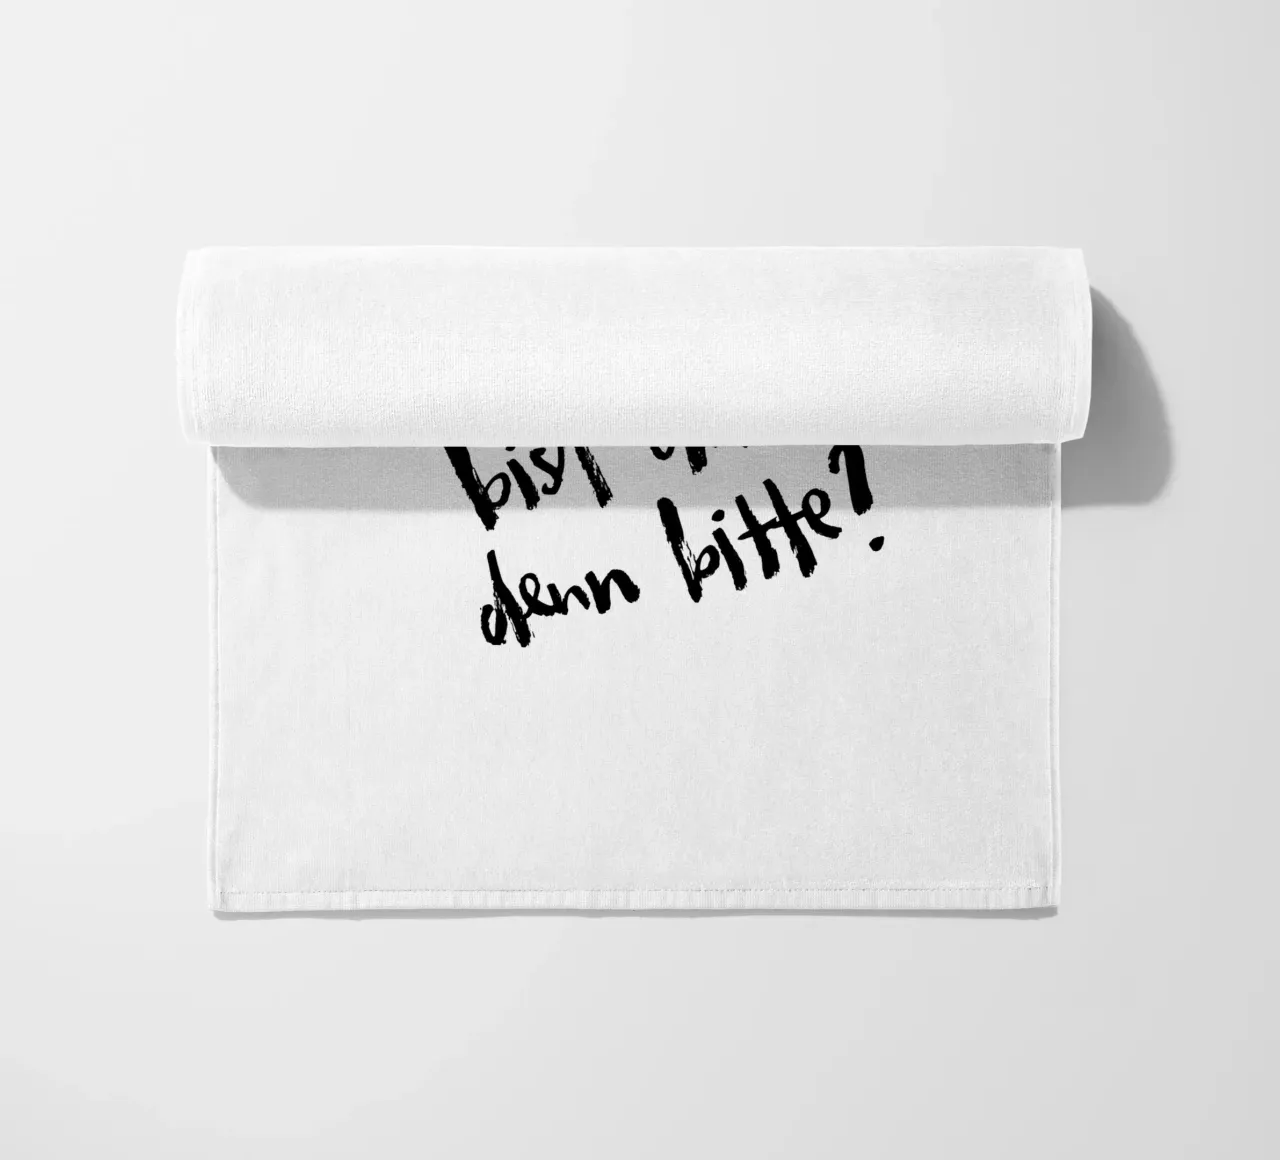 bist
denn bitte?